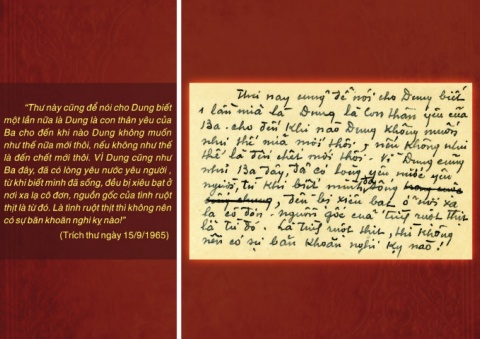 “Thư này cũng để nói cho Dung biết
một lần nữa là Dung là con thân yêu của
Ba cho đến khi nào Dung không muốn
như thế nữa mới thôi, nếu không như thế
là đến chết mới thôi. VÌ Dung cũng như
Ba đây, đã có lòng yêu nước yêu người ,
từ khi biết mình đã sống, đều bị xiêu bạt ở
nơi xa lạ cô đơn, nguồn gốc của tình ruột
thịt là từ đó. Là tình ruột thịt thì không nên
có sự băn khoăn nghi kỵ nào!”
(Trích thư ngày 15/9/1965)
Thư này cũng để nói cho Dung biết
1 lần nữa là Dung là con thân yêu của
Ba. cho đến khi nào Dung không muốn
như thế nữa mới thôi, nếu không như
thế là đến chết mới thôi. Vì Dung cũng
như Ba đây, đã có lòng yêu nước yêu
người, từ khi biết mình
đều bị xiêu bạt ở nơi xa
lạ cô đơn. nguồn gốc của tình ruột thịt
là từ đó. Là tình ruột thịt, thì không
nên có sự băn khoăn nghi kỵ nào!